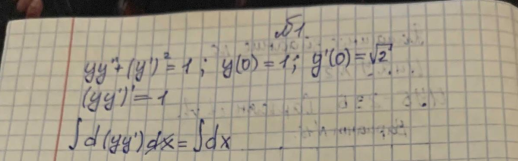 №1
yy''+(y')²=1; y(0)=1; y'(0)=√2
(yy')'=1
∫d(yy')dx=∫dx